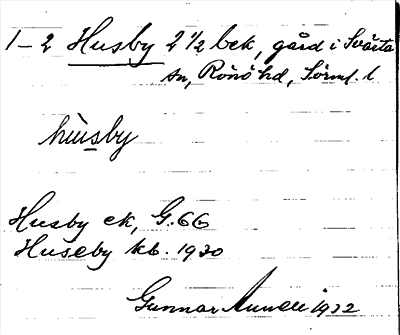 1-2 Husby 2 1/2 bek, gård i Svärta
sn, Rönö hd, Sörml. l
hùsby
Husby ek, G. 66
Huseby kb. 1930
Gunnar 1932